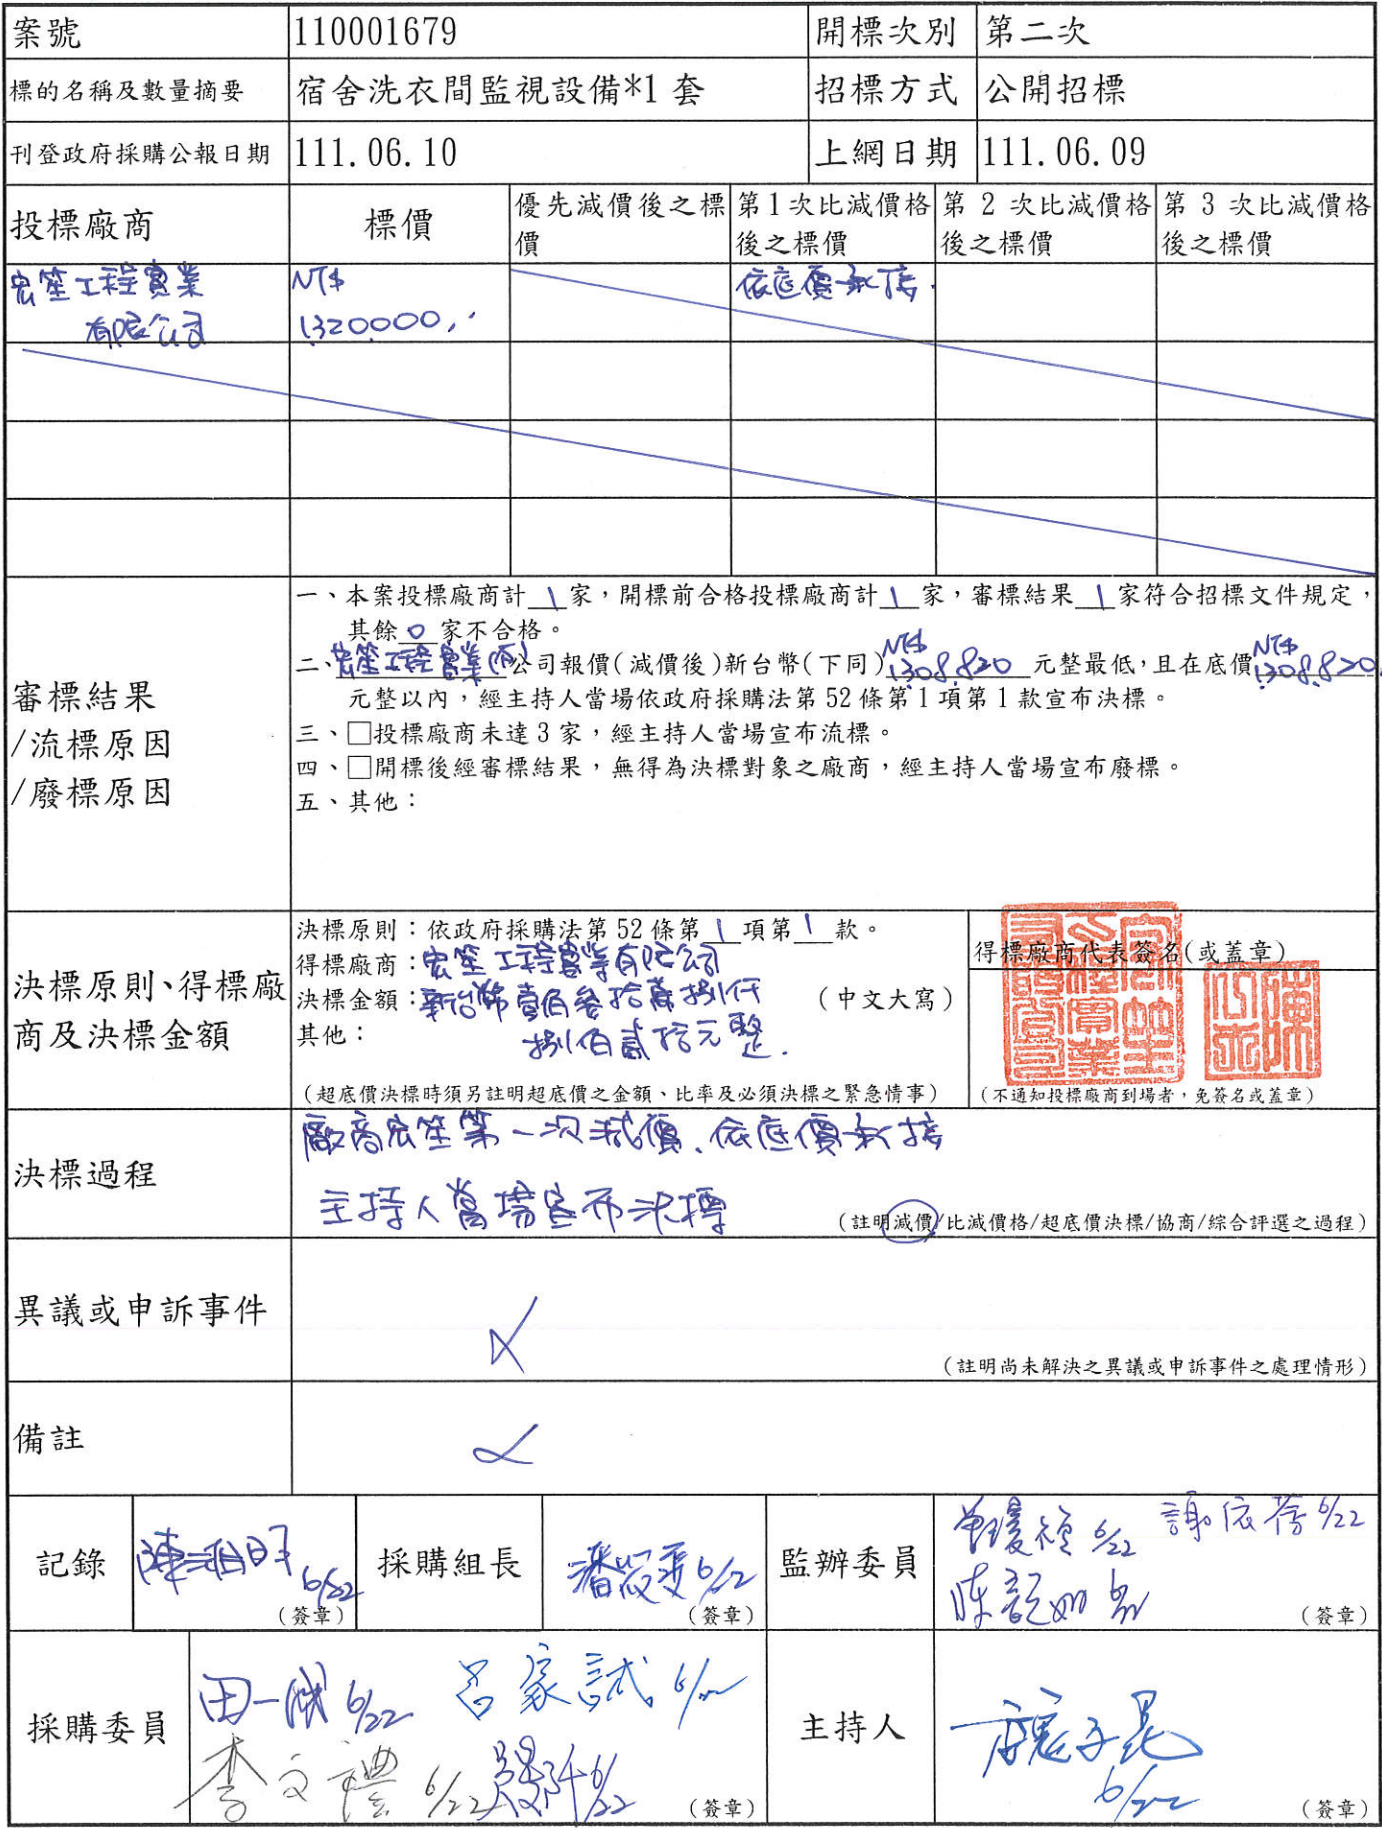 案號 110001679 開標次別 第二次
標的名稱及數量摘要 宿舍洗衣間監視設備*1 套 招標方式 公開招標
刊登政府採購公報日期 111.06.10 上網日期 111.06.09
投標廠商 標價 優先減價後之標價 第1次比減價格後之標價 第 2 次比減價格後之標價 第 3 次比減價格後之標價
宏笙工程實業有限公司 NT$ 1,320,000,. 依底價承接.
審標結果
/流標原因
/廢標原因
一、本案投標廠商計 1 家，開標前合格投標廠商計 1 家，審標結果 1 家符合招標文件規定，
其餘 0 家不合格。
二、宏笙工程實業(有)公司報價(減價後)新台幣(下同) NT$ 1,308,820 元整最低，且在底價 NT$ 1,308,820
元整以內，經主持人當場依政府採購法第 52 條第 1 項第 1 款宣布決標。
三、□投標廠商未達 3 家，經主持人當場宣布流標。
四、□開標後經審標結果，無得為決標對象之廠商，經主持人當場宣布廢標。
五、其他：
決標原則、得標廠
商及決標金額
決標原則：依政府採購法第 52 條第 1 項第 1 款。
得標廠商：宏笙工程實業有限公司
決標金額：新台幣壹佰參拾萬捌仟 (中文大寫)
其他： 捌佰貳拾元整.
(超底價決標時須另註明超底價之金額、比率及必須決標之緊急情事)
得標廠商代表簽名(或蓋章)
(不通知投標廠商到場者，免簽名或蓋章)
決標過程
廠商宏笙第一次減價、依底價承接
主持人當場宣布決標
(註明減價/比減價格/超底價決標/協商/綜合評選之過程)
異議或申訴事件
(註明尚未解決之異議或申訴事件之處理情形)
備註
記錄 6/22 (簽章) 採購組長 6/22 (簽章) 監辦委員 6/22 謝依蓉 6/22
(簽章)
採購委員 田一成 6/22 呂家誠 6/22
李文禮 6/22 6/22 (簽章)
主持人 6/22 (簽章)